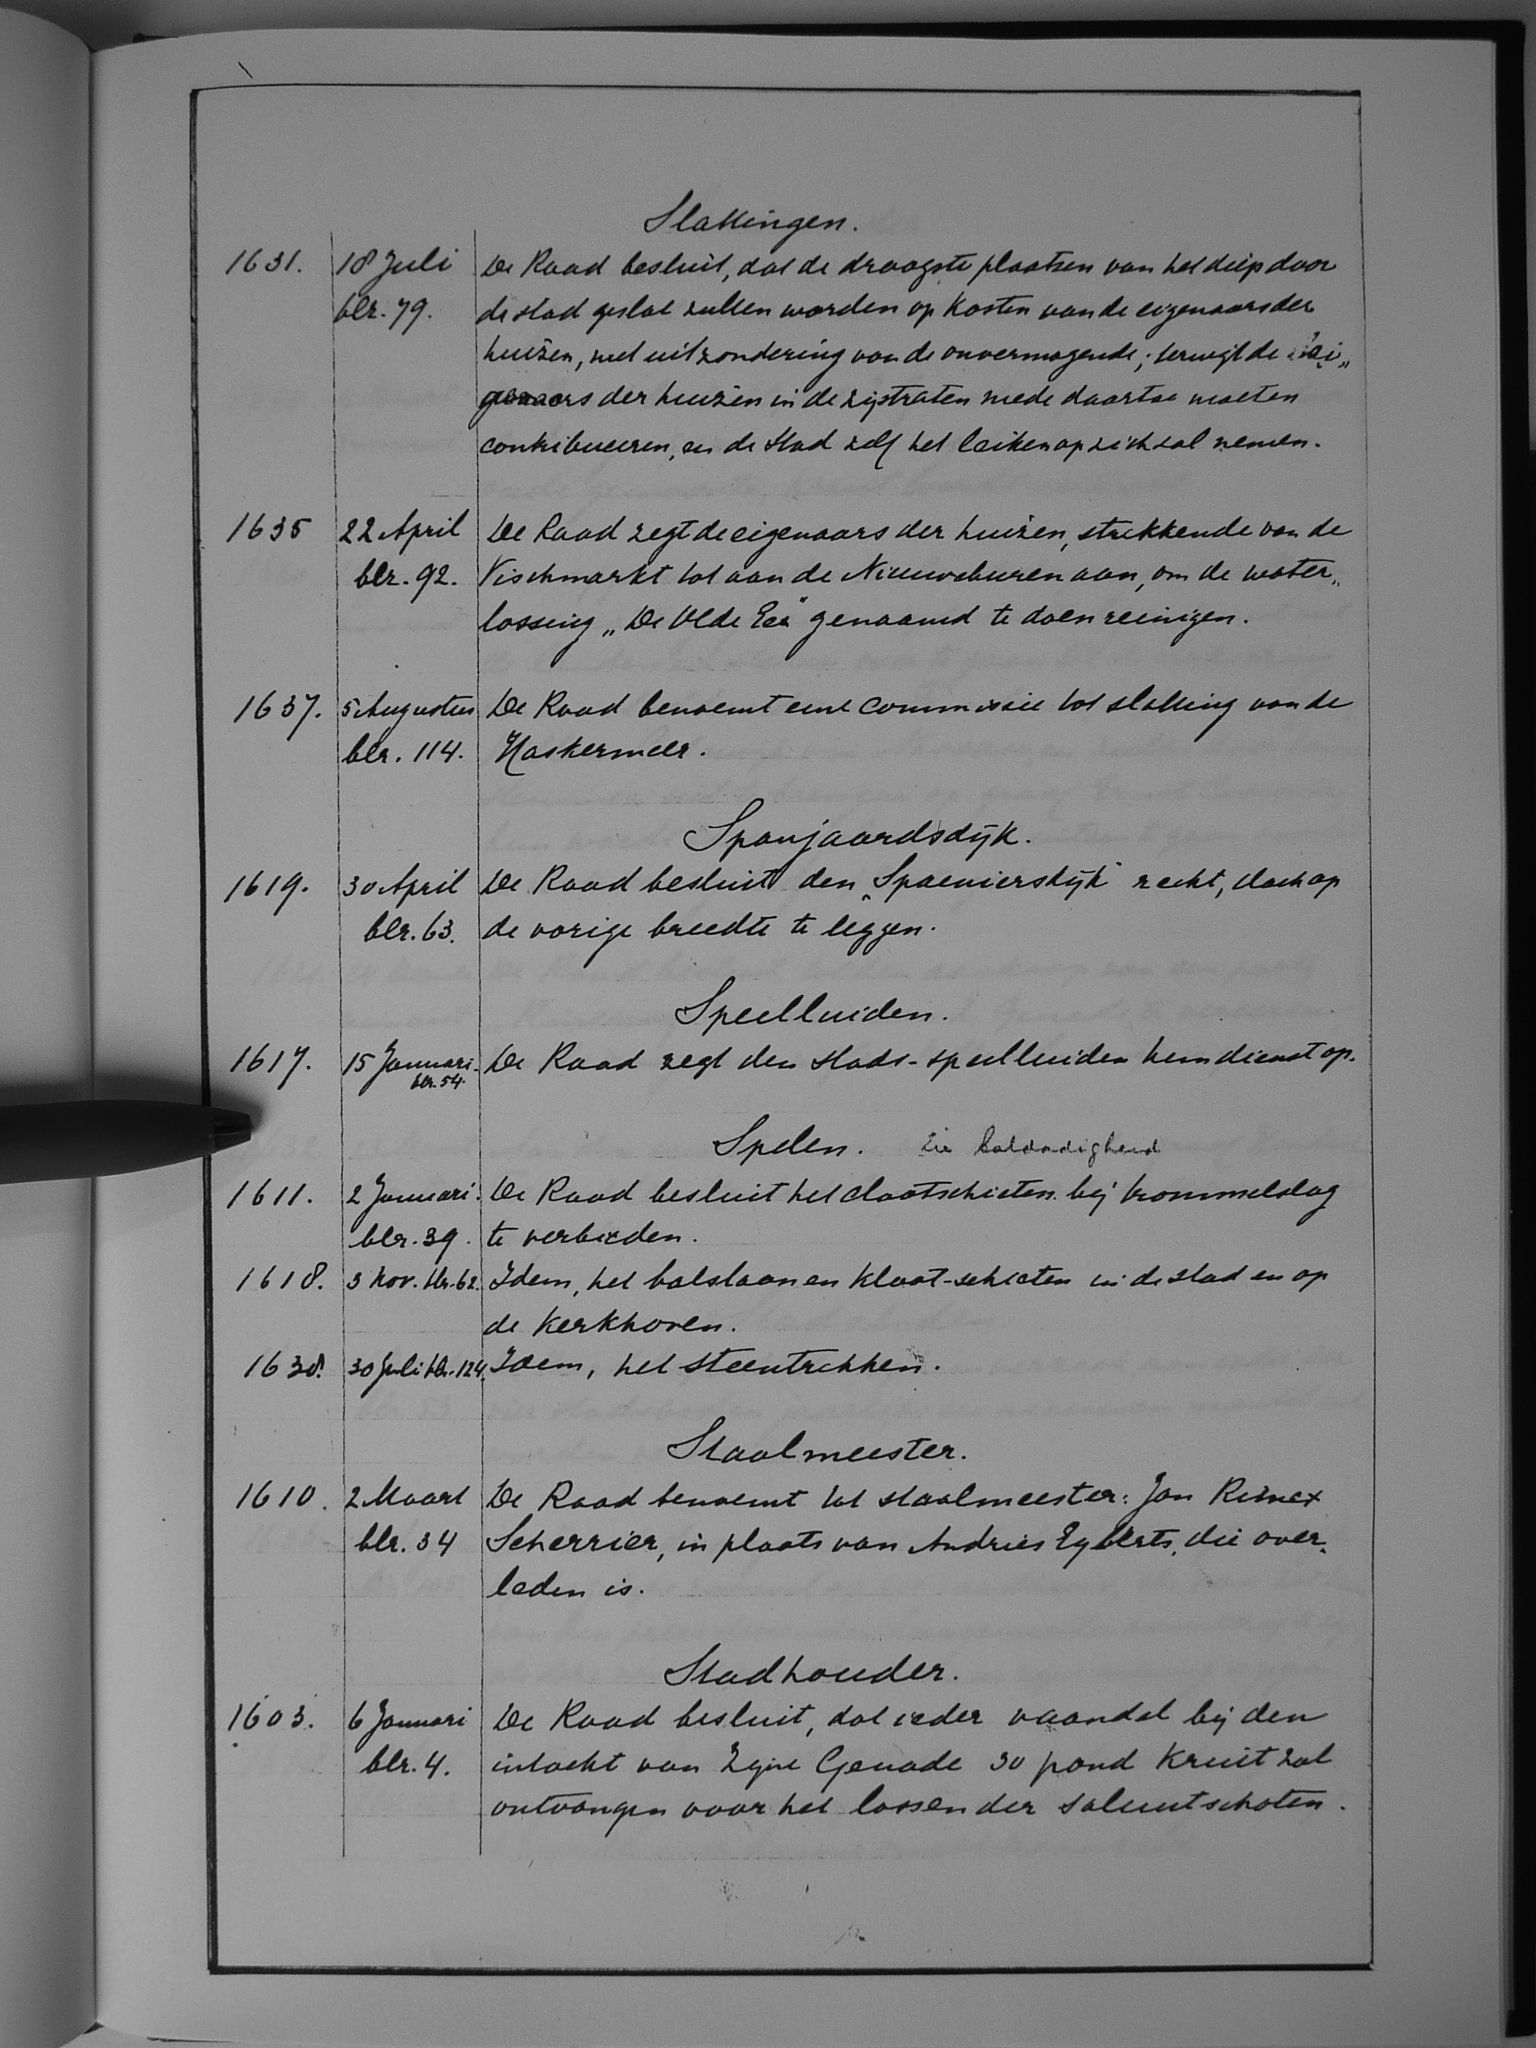 Slattingen.
1631. 18 Juli De Raad besluit, dat de droogste plaatsen van het diep door
blz. 79. de stad geslat zullen worden op kosten van de eigenaars der
huizen, met uitzondering van de onvermogende; terwijl de ei„
genaars der huizen in de zijstraten mede daartoe moeten
contribueeren, en de Stad zelf het leiken op zich zal nemen.
1635 22 April De Raad zegt de eigenaars der huizen, strekkende van de
blz. 92. Vischmarkt tot aan de Nieuweburen aan, om de water„
lossing „De Olde Ee" genaamd te doen reinigen.
1637. 5 Augustus De Raad benoemt eene commissie tot slatting van de
blz. 114. Haskermeer.
Spanjaardsdijk.
1619. 30 April De Raad besluit den „Spaeniersdijk" recht, doch op
blz. 63. de vorige breedte te leggen.
Speelluiden.
1617. 15 Januari. De Raad zegt den stads-speelluiden hem dienst op.
blz. 54.
Spelen. Zie baldadigheid
1611. 2 Januari. De Raad besluit het clootschieten bij trommelslag
blz. 39. te verbieden.
1618. 3 Nov. blz. 62. Idem, het balslaan en kloot-schieten in de stad en op
de kerkhoven.
1638. 30 Juli blz. 124. Idem, het steentrekken.
Staalmeester.
1610. 2 Maart De Raad benoemt tot staalmeester: Jan
blz. 34 Scherrier, in plaats van Andries Egberts, die over„
leden is.
Stadhouder.
1603. 6 Januari De Raad besluit, dat ieder vaandel bij den
blz. 4. intocht van Zijne Genade 30 pond kruit zal
ontvangen voor het lossen der saluutschoten.